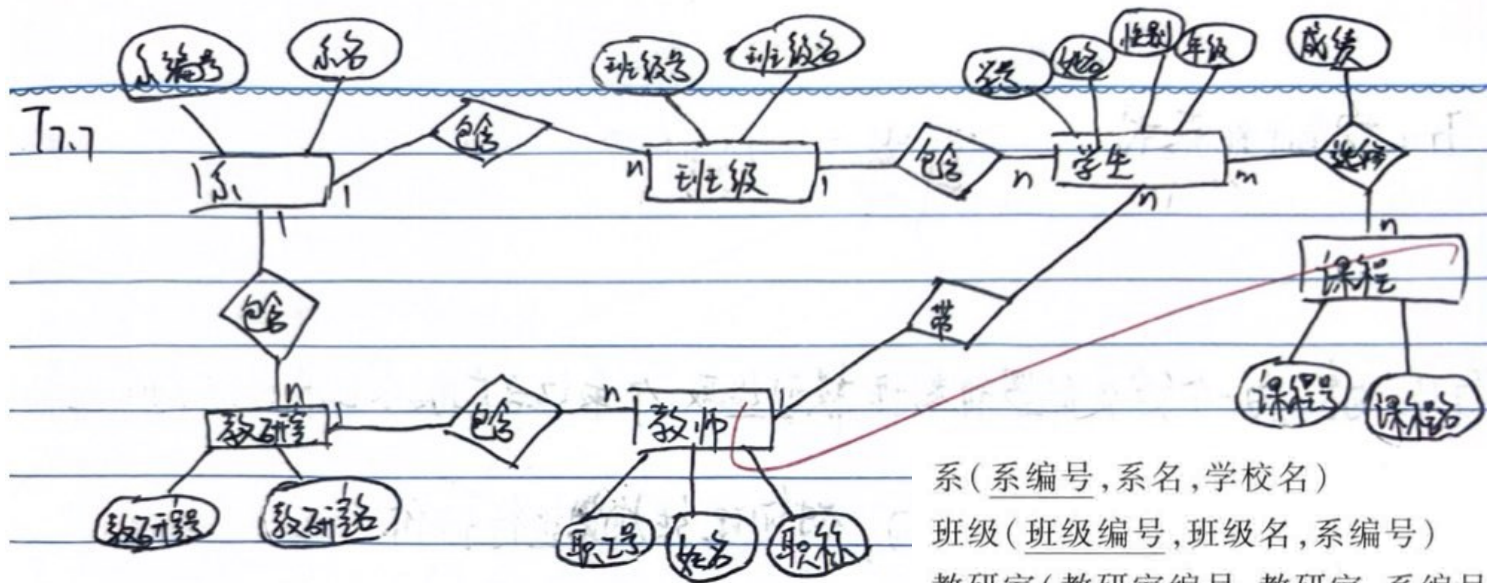 系编号 系名 班级号 班级名 学号 姓名 性别 年级 成绩
T7.7
系 1 包含 n 班级 1 包含 n 学生 m 选择
1 n n
包含 带 课程
n 教研室 1 包含 n 教师 1
课程号 课程名
教研室号 教研室名 职工号 姓名 职称
系(系编号,系名,学校名)
班级(班级编号,班级名,系编号)